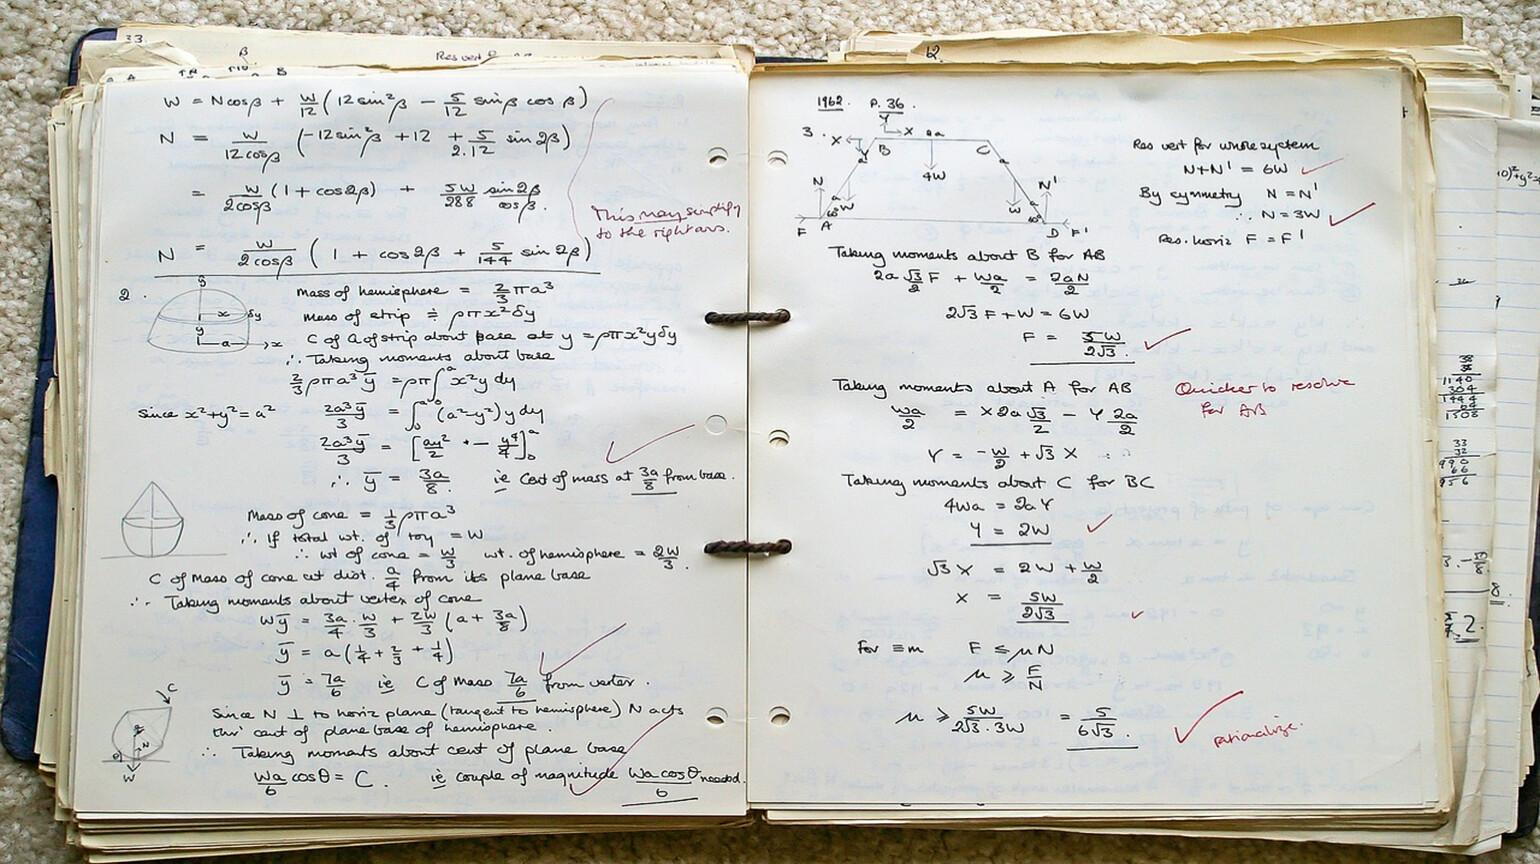 33.
β
Res vert
A
B
W = Ncosβ + W/12 (12sin²β − 5/12 sinβ cosβ)
N = W/12cosβ (−12sin²β + 12 + 5/2.12 sin2β)
= W/2cosβ (1 + cos2β) + 5W/288 sin2β/cosβ.
This may simplify
to the right ans.
N = W/2cosβ (1 + cos2β + 5/144 sin2β)
2.
y
x
δy
y
a
x
mass of hemisphere = 2/3 πa³
mass of strip ≑ ρπx²δy
C of G of strip about base at y = ρπx²yδy
∴ Taking moments about base
2/3 ρπa³ȳ = ρπ∫₀ᵃ x²y dy
Since x²+y² = a² 2a³ȳ/3 = ∫₀ᵃ (a²−y²)y dy
2a³ȳ/3 = [ay²/2 − y⁴/4]₀ᵃ
∴ ȳ = 3a/8. ie Cent of mass at 3a/8 from base.
Mass of cone = 1/3 ρπa³
∴ If total wt. of toy = W
∴ wt of cone = W/3 wt. of hemisphere = 2W/3.
C of Mass of cone at dist. a/4 from its plane base
∴ Taking moments about vertex of cone
Wȳ = 3a/4 . W/3 + 2W/3 (a + 3a/8)
ȳ = a(1/4 + 2/3 + 1/4)
ȳ = 7a/6 ie C of mass 7a/6 from vertex.
C
W
Since N ⊥ to horiz plane (tangent to hemisphere) N acts
thr' cent of plane base of hemisphere.
∴ Taking moments about cent of plane base
Wa/6 cosθ = C. ie couple of magnitude Wa cosθ/6 needed.
62.
1962. P. 36.
3.
Y
X X 2a
B C
Y
a a
4W
N N'
W W
a a
60° 60°
F A D F'
Res vert for whole system
N+N' = 6W
By symmetry N = N'
∴ N = 3W
Res. horiz F = F'
Taking moments about B for AB
2a√3/2 F + Wa/2 = 2aN/2
2√3 F + W = 6W
F = 5W/2√3.
Taking moments about A for AB
Quicker to resolve
for AB
Wa/2 = X2a√3/2 − Y 2a/2
Y = −W/2 + √3 X
Taking moments about C for BC
4Wa = 2aY
Y = 2W
√3 X = 2W + W/2
X = 5W/2√3
For ≡m F ≤ μN
μ ≥ F/N
μ ≥ 5W/2√3.3W = 5/6√3.
rationalize.
38
38
1140
304
1444
64
1508
33
32
990
66
956